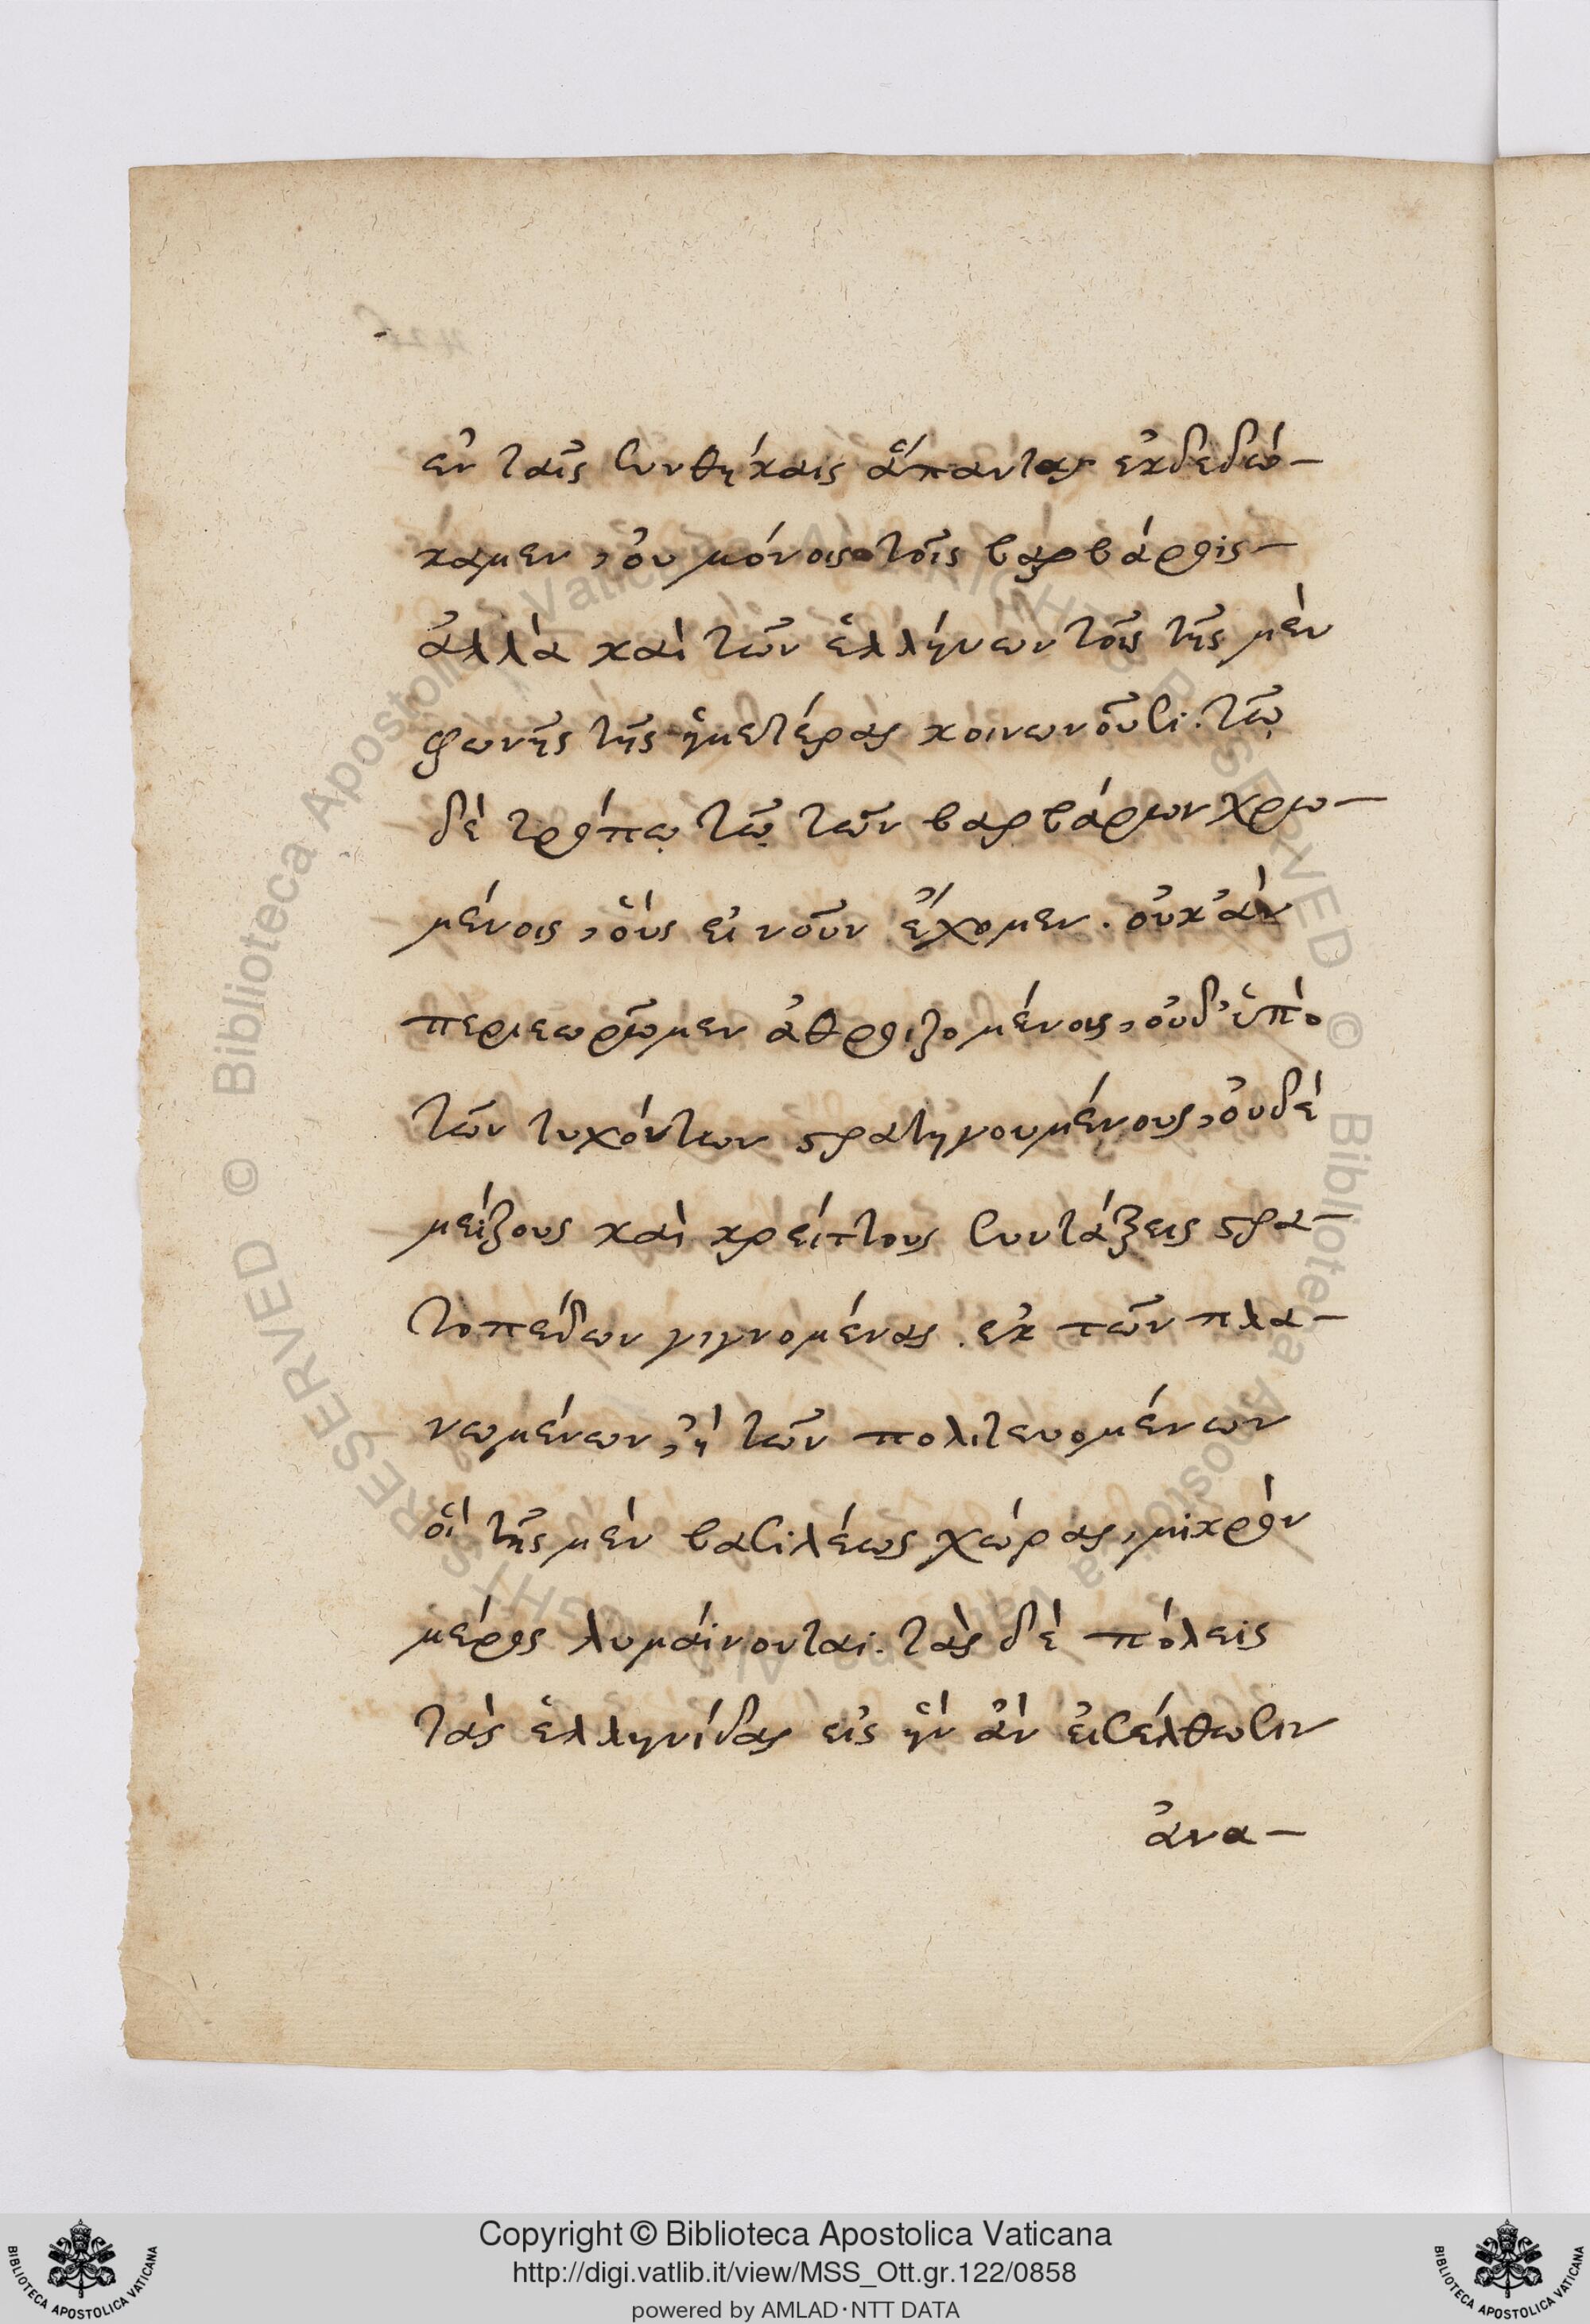 ἐν ταῖς συνθήκαις ἅπαντας ἐκδεδώ-
καμεν, οὐ μόνοις τοῖς βαρβάροις
ἀλλὰ καὶ τῶν ἑλλήνων τοῖς τῆς μὲν
φωνῆς τῆς ἡμετέρας κοινωνοῦσι. τῶ
δὲ τρόπω τῶ τῶν βαρβάρων χρω-
μένοις, οὓς εἰ νοῦν ἔχομεν. οὐκ ἂν
περιεωρῶμεν ἀθροιζομένοις, οὐδ' ὑπὸ
τῶν τυχόντων στρατηγουμένους, οὐδὲ
μείζους καὶ κρείττους συντάξεις στρα-
τοπέδων γιγνομένας ἐκ τῶν πλα-
νωμένων, ἢ τῶν πολιτευομένων
οἳ τῆς μὲν βασιλέως χώρας, μικρὸν
μέρος λυμαίνονται. τὰς δὲ πόλεις
τὰς ἑλληνίδας εἰς ἣν ἂν εἰσέλθωσιν
ἀνα-
Copyright © Biblioteca Apostolica Vaticana
http://digi.vatlib.it/view/MSS_Ott.gr.122/0858
powered by AMLAD·NTT DATA
BIBLIOTECA APOSTOLICA VATICANA
BIBLIOTECA APOSTOLICA VATICANA